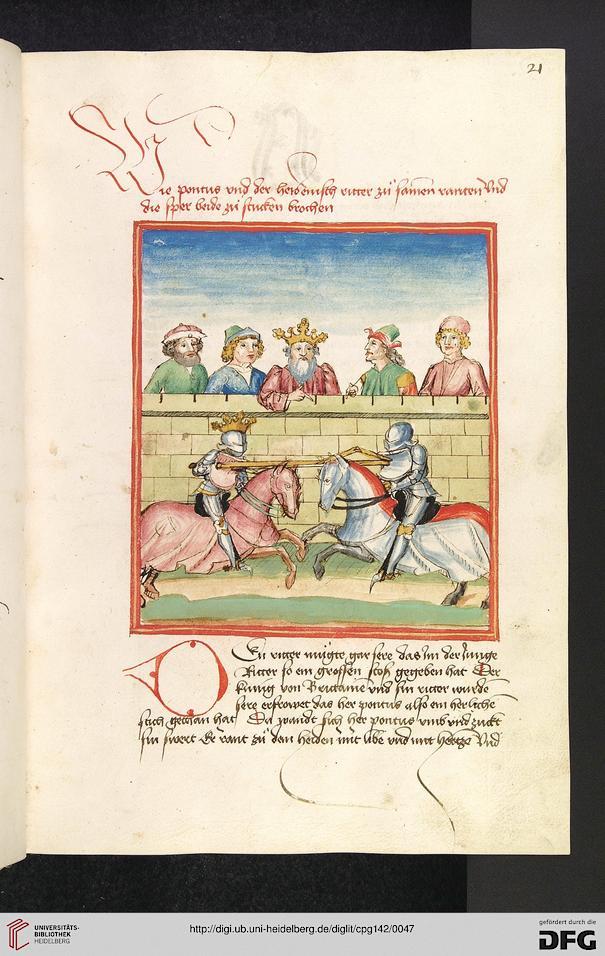 21
Wie pontus vnd der heidenisch ritter zu samen ranten Vnd
die sper beide zu stucken brochen
Den ritter mügte gar sere das im der Junge
Ritter so ein grossen stoß gegeben hat Der
kunig von Britanie vnd sin ritter wurde
sere erfrowet das her pontus also ein herliche
stich gethan hat Da wandt sich her pontus vmb vnd zuckt
sin swert Er rant zu dem heiden mit libe vnd mit hertze Vnd
UNIVERSITÄTS-
BIBLIOTHEK
HEIDELBERG
http://digi.ub.uni-heidelberg.de/diglit/cpg142/0047
gefördert durch die
DFG